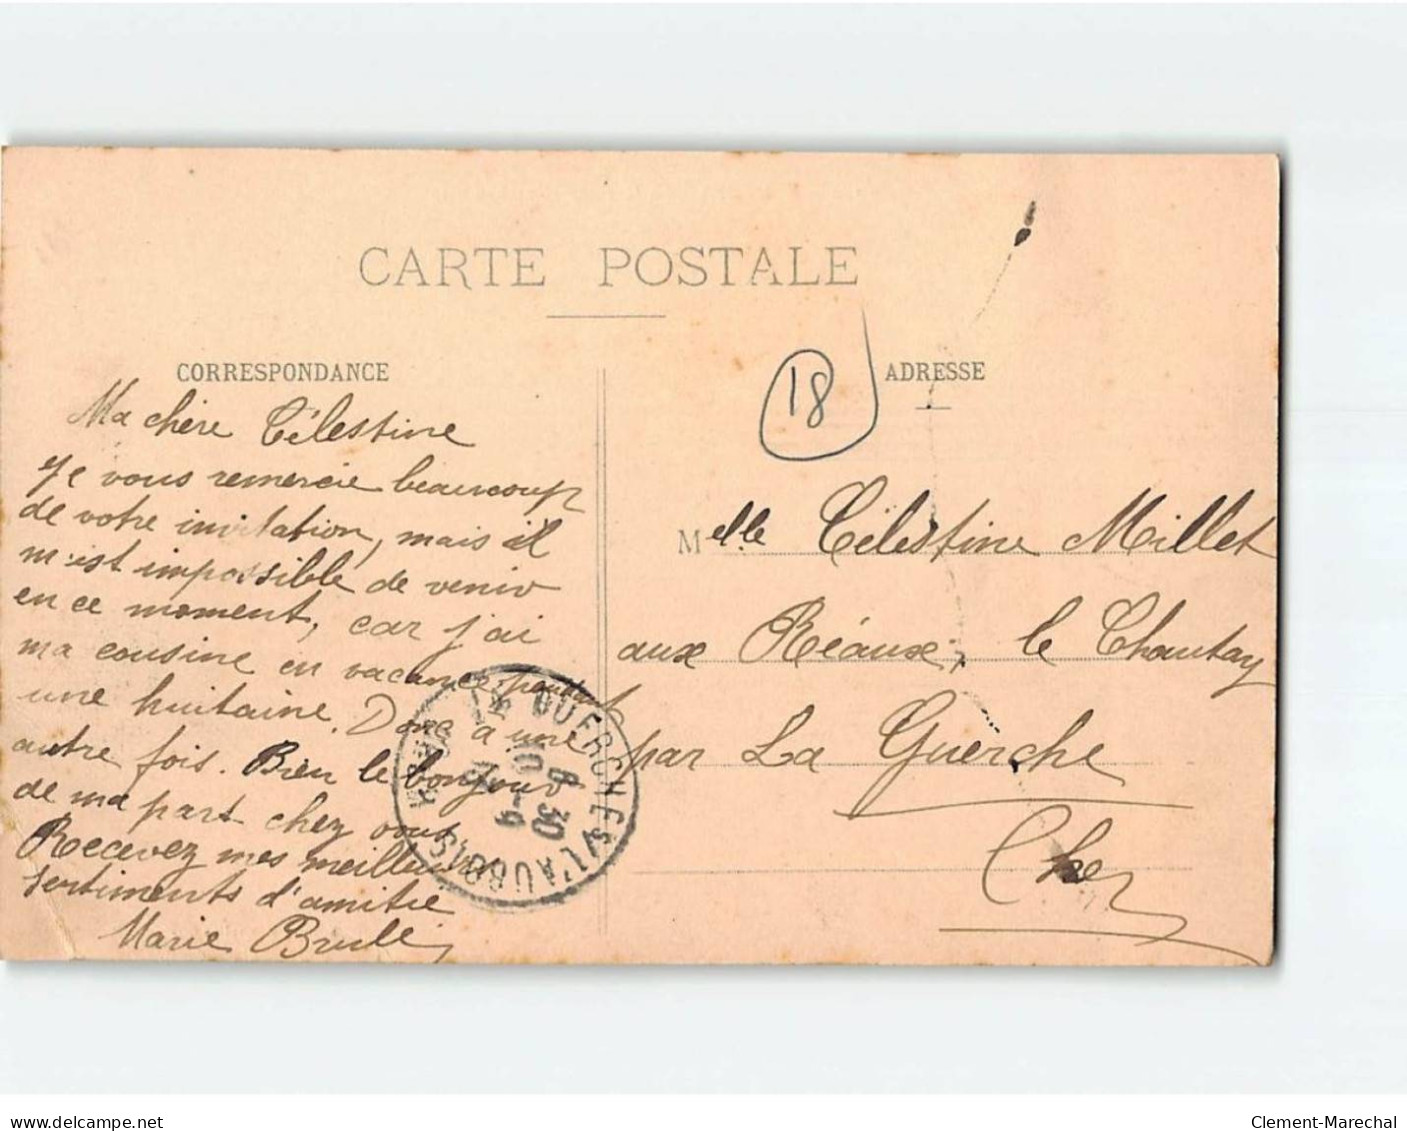 CARTE POSTALE
CORRESPONDANCE
Ma chère Célestine
Je vous remercie beaucoup
de votre invitation, mais il
m'est impossible de venir
en ce moment, car j'ai
ma cousine en vacance pendant
une huitaine. Donc à une
autre fois. Bien le bonjour
de ma part chez vous
Recevez mes meilleurs
sentiments d'amitie
Marie Brulé
18
ADRESSE
Melle Célestine Millet
aux Réaux, le Chautay
par La Guerche
Cher
LA GUERCHE S/L'AUBOIS
8 30
delcampe.net
Clement-Marechal